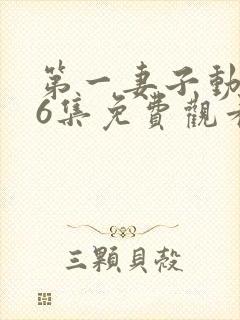 第一妻子動
6集免費觀看
三顆貝殼